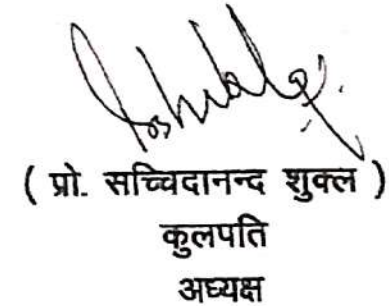 ( प्रो. सच्चिदानन्द शुक्ल )
कुलपति
अध्यक्ष